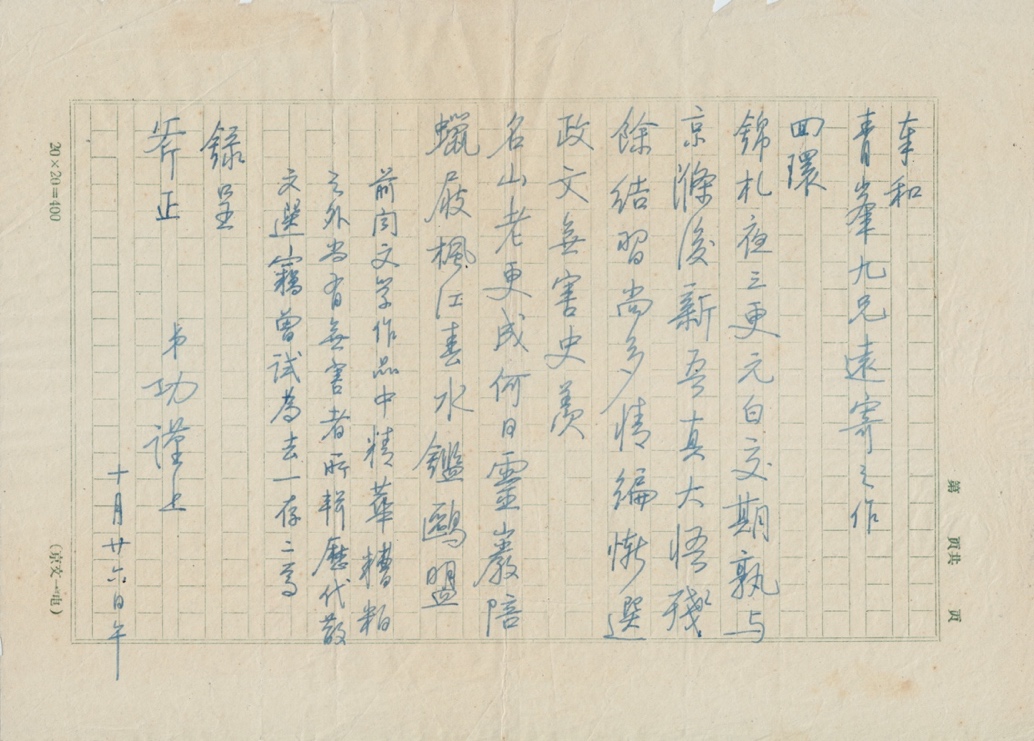 奉和
青峯九兄遠寄之作
回環
錦札夜三更元白交期孰与
京滌後新吾真大悟殘
餘結習尚多情編慚選
政文無害史羨
名山老更成何日靈巖陪
蠟屐楓江春水鑑鷗盟
前聞文学作品中精華糟粕
之外尚有無害者所輯歷代散
文選竊曾試為去一存二焉
錄呈
斧正
弟功謹上
十月廿六日午
第 页共 页
20×20=400
(京文一电)